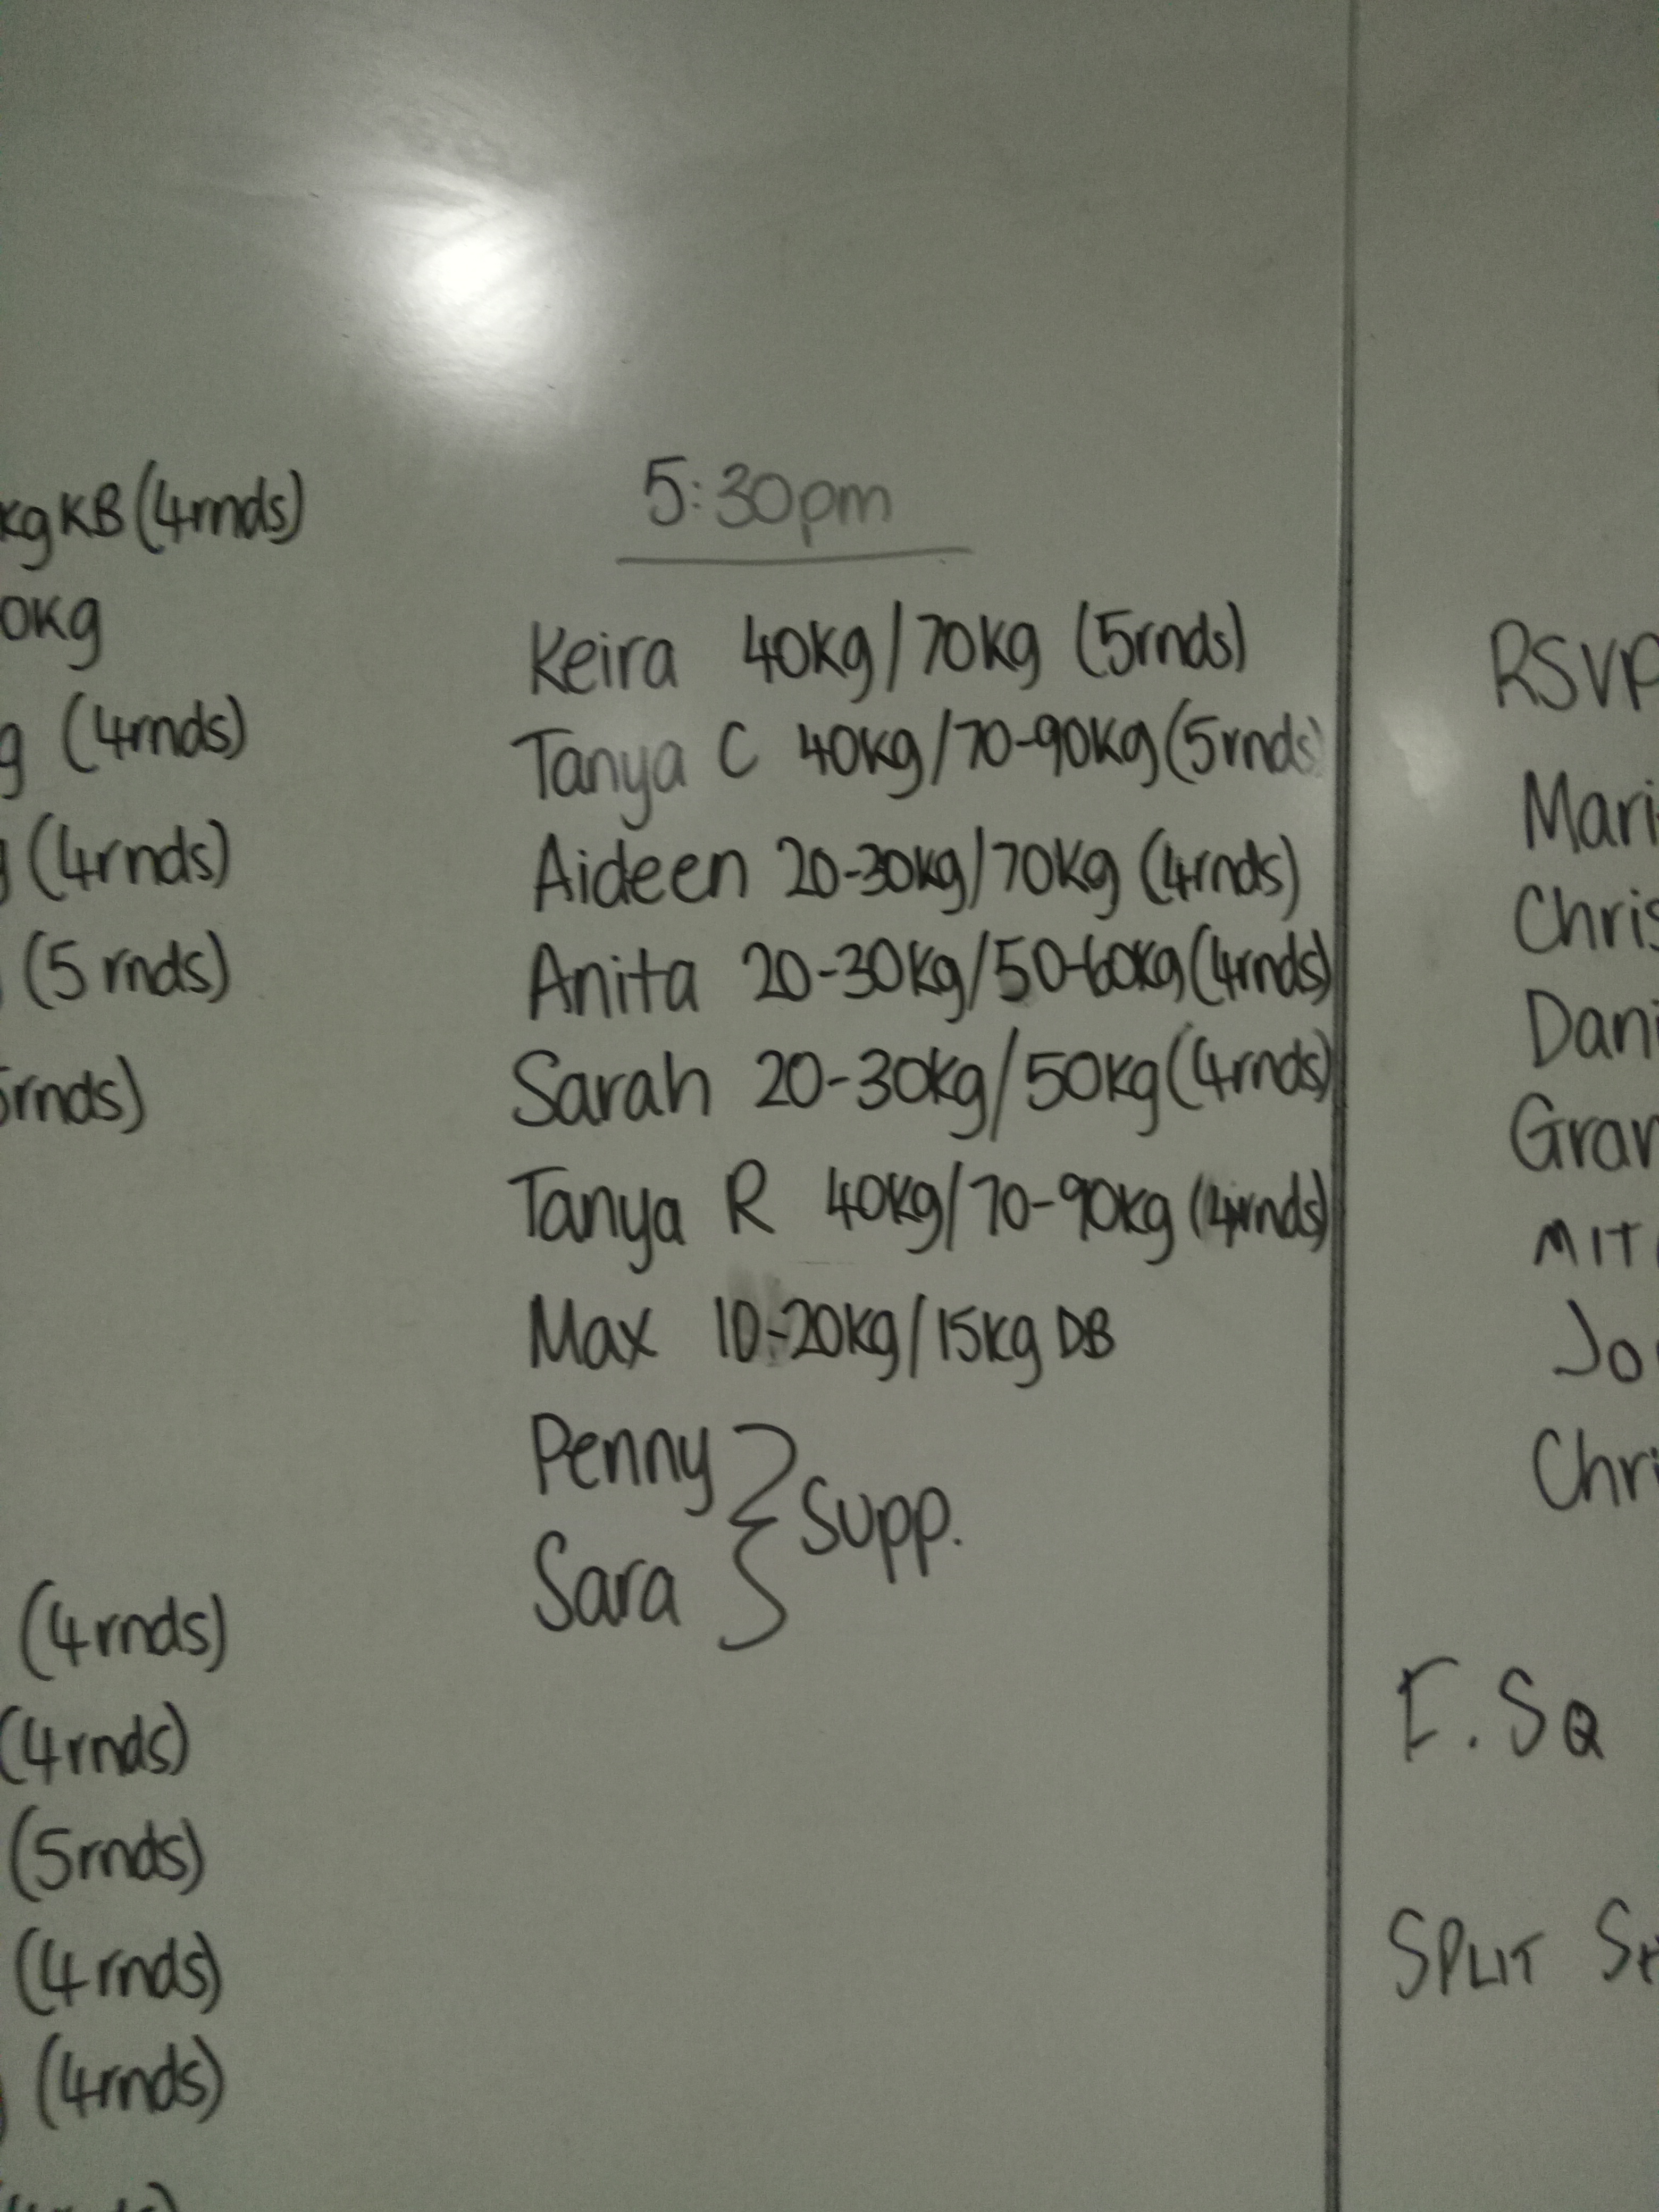 kg KB (4rnds)
0kg
g (4rnds)
(4rnds)
(5 rnds)
5rnds)
(4rnds)
(4rnds)
(5rnds)
(4rnds)
(4rnds)
5:30pm
Keira 40kg/70kg (5rnds)
Tanya C 40kg/70-90kg (5rnds)
Aideen 20-30kg/70kg (4rnds)
Anita 20-30kg/50-60kg (4rnds)
Sarah 20-30kg/50kg (4rnds)
Tanya R 40kg/70-90kg (4rnds)
Max 10-20kg/15kg DB
Penny
Sara
Supp.
RSVP
Mari
Chris
Dani
Gran
MIT
Jo
Chri
F.SQ
SPLIT